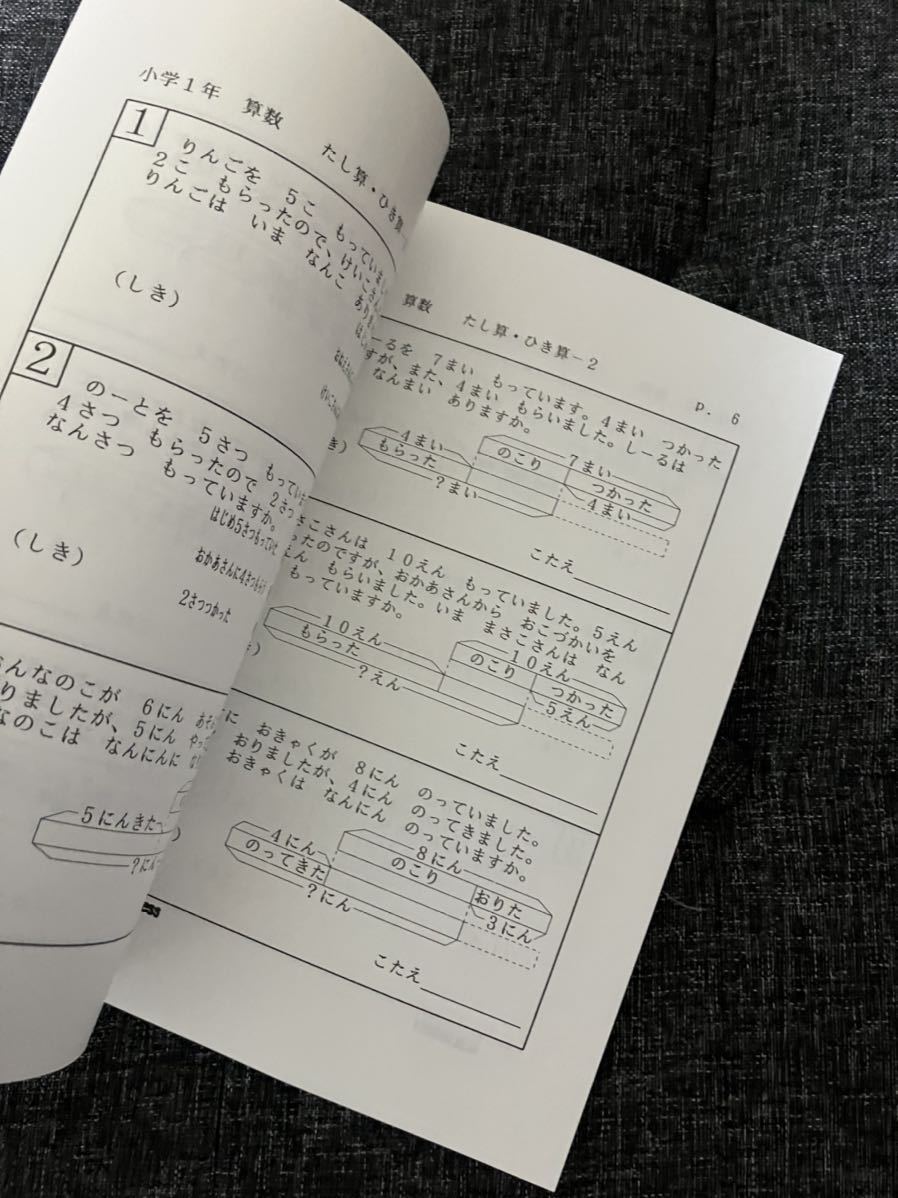 小学1年 算数 たし算・ひき算
1
りんごを 5こ もっていまし
2こ もらったので、けいこさん
りんごは いま なんこ ありま
(しき)
2
のーとを 5さつ もってい
4さつ もらったので 2さつ
なんさつ もっていますか。
はじめ5さつもってい
おかあさんに4さつもらう
2さつつかった
(しき)
んなのこが 6にん あそ
りましたが、5にん やっ
なのこは なんにんに な
5にんきた
?にん
算数 たし算・ひき算－2
p. 6
ーるを 7まい もっています。4まい つかった
すが、また、4まい もらいました。しーるは
なんまい ありますか。
き)
4まい
もらった
?まい
のこり
7まい
つかった
4まい
こたえ
さこさんは 10えん もっていました。5えん
ったのですが、おかあさんから おこづかいを
えん もらいました。いま まさこさんは なん
もっていますか。
10えん
もらった
?えん
のこり
10えん
つかった
5えん
こたえ
に おきゃくが 8にん のっていました。
おりましたが、4にん のってきました。
おきゃくは なんにん のっていますか。
4にん
のってきた
?にん
8にん
のこり
おりた
3にん
こたえ